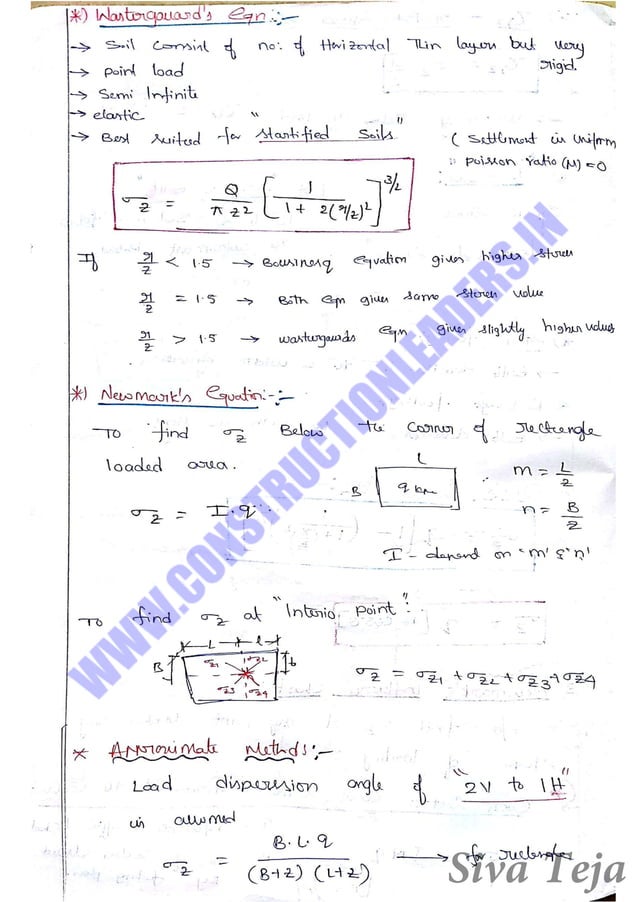 *) Wastergaurd's Eqn :-
→ Soil Consist of no: of Horizontal Thin layers but very rigid.
→ Point load
→ Semi Infinite
→ elastic
→ Best suited for "Startified Soils"
( Settlement is uniform
∴ poisson ratio (μ) = 0
σz = Q/πz² [1/(1 + 2(r/z)²)]^3/2
If r/z < 1.5 → Bousinesq Equation gives higher stress
r/z = 1.5 → Both Eqn gives same stress value
r/z > 1.5 → wastergaurds Eqn gives slightly higher values
*) Newmark's Equation :-
To find σz Below the corner of rectangle
loaded area.
L
B
q kpa
m = L/z
n = B/z
σz = I.q
I - depend on 'm' & 'n'
To find σz at "Interio point" :
L l
B b
σz1 σz2
σz3 σz4
σz = σz1 + σz2 + σz3 + σz4
* Approximate Methods :-
Load dispersion angle of "2V to 1H"
is assumed
σz = B.L.q/(B+z) (L+z) → for rectangles
WWW.CONSTRUCTIONLEADERS.IN
Siva Teja